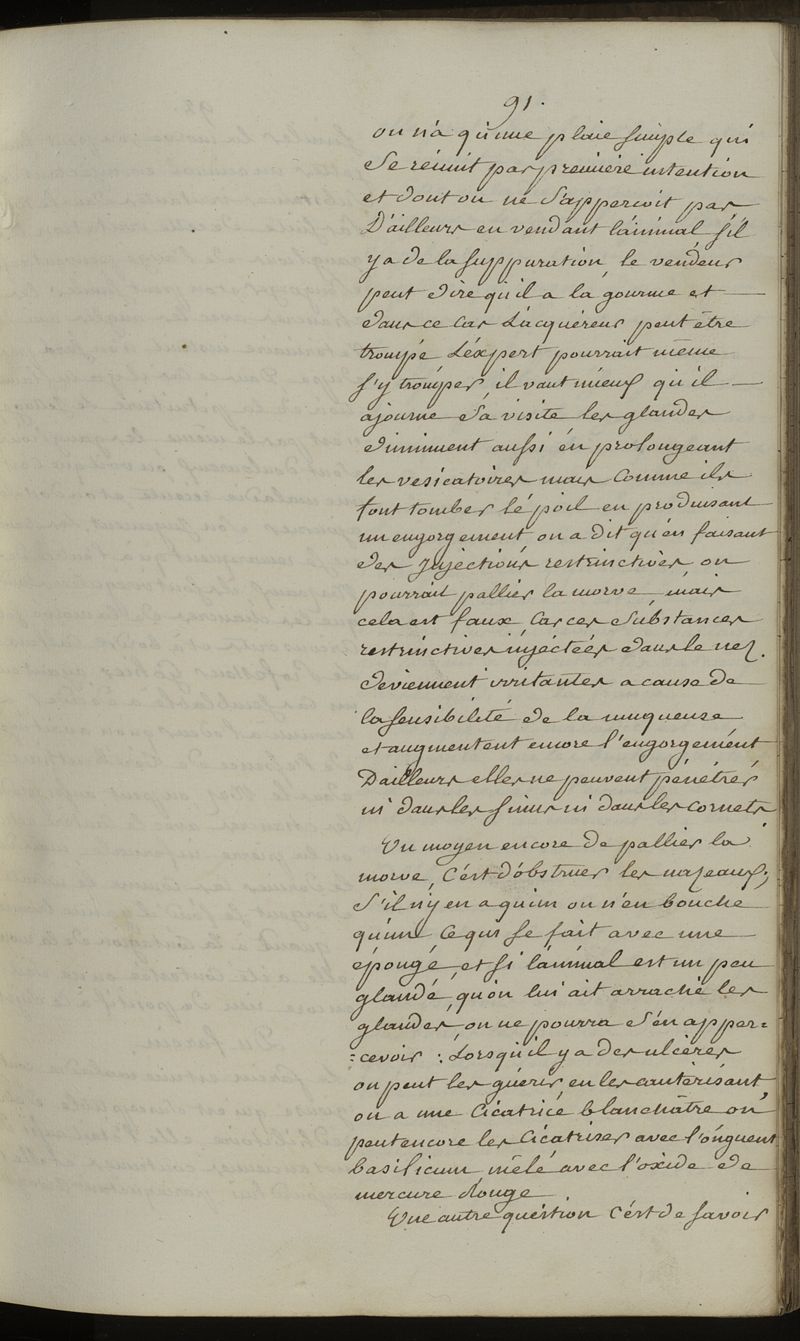 91.
on n'a qu'une plaie simple qui
se réunit par premiere intention
et dont on ne s'appercoit pas
D'ailleurs en vendant l'animal s'il
y a de la suppuration le vendeur
peut dire qu'il a la gourme et —
dans ce cas l'acquéreur peut être
trompé L'éxpert pourrait même
s'y tromper, il vaut mieux qu'il —
ajourne sa visite les glandes
diminuent aussi en prolongeant
les vesicatoires mais comme ils
font tomber le poil en produisant
un engorgement on a dit qu'en faisant
des Injections restrinctives on
pourrait pallier la morve mais
cela est faux, Car ces substances
restrinctives injéctées dans le nez
deviennent irritantes a cause de
la sensibilité de la muqueuse
et augmentent encore l'engorgement
D'ailleurs elles ne peuvent pénétrér
ni dans les sinus ni dans les cornets
Un moyen encore de pallier la
morve, C'est d'obstruer les nazeaux;
S'il n'y en a qu'un on n'en bouche
qu'un Ce qui se fait avec une
épongé, et si l'animal est un peu
glandé, qu'on lui ait arraché les
glandes, on ne pourra s'en apper=
=cevoir : Lorsqu'il y a des ulcères
on peut les guérir en les cautérisant,
on a une Cicatrice blanchâtre on
peut encore les Cicatriser avec l'onguent
basilicum mêlé avec l'oxide de
mercure rouge.
Une autre question C'est de savoir